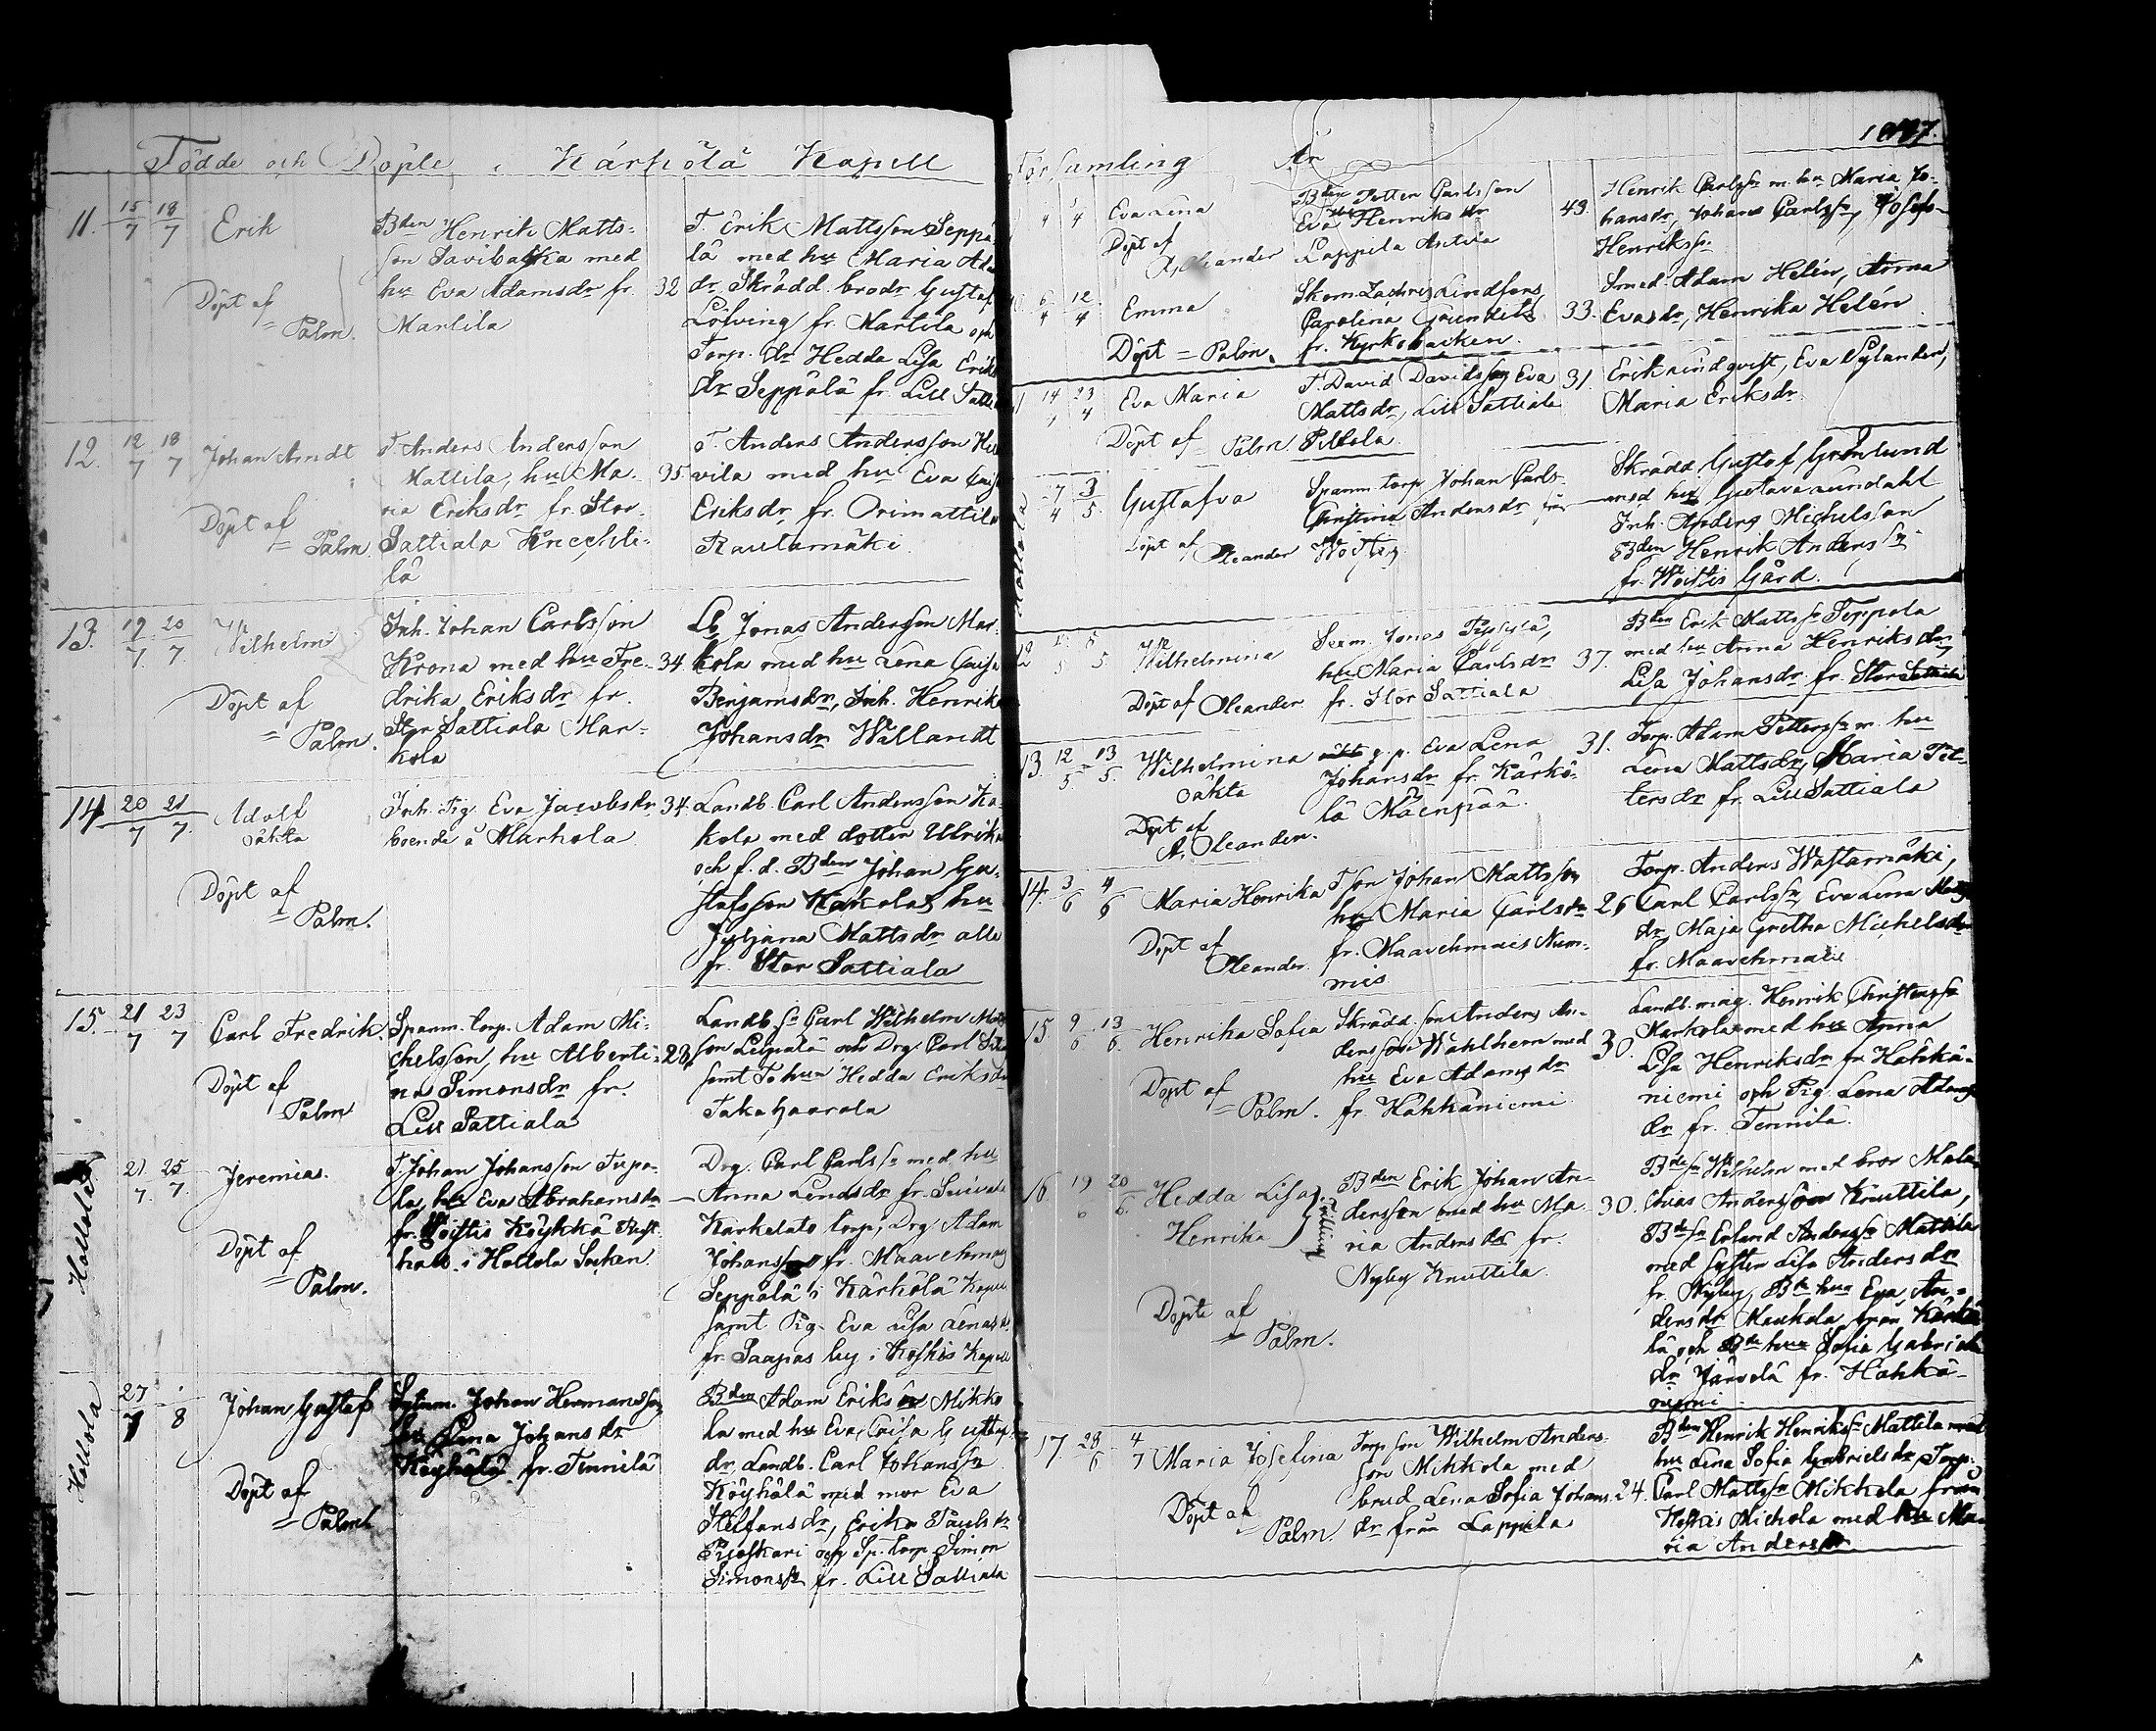 Födde och Döpte i Kärkölä Kapell
11. 15/7 18/7 Erik
Döpt af
= Palm.
Bden Henrik Matts-
son Savi med
hu Eva Adamsdr fr.
Martila
32
T. Erik Mattsson Seppä-
lä med hu Maria Adams
dr, Skrädd. brodr Gustaf
Löfving fr. Martila och
Torp. dr Hedda Lisa Eriks
dr Seppälä fr. Lill Sattiala
12. 12/7 18/7 Johan Arndt
Döpt af
= Palm.
T. Anders Andersson
Mattila, hu Ma-
ria Eriksdr fr. Stor
Sattiala
lä
35
T. Anders Andersson
vila med hu Eva Caisa
Eriksdr fr. Orimattila
Rautamäki
13. 19/7 20/7 Wilhelm
Döpt af
= Palm.
Inh. Johan Carlsson
Krona med hu Fre-
drika Eriksdr fr.
Stor Sattiala Mar-
kola
34.
Lb. Jonas Andersson Mar-
kola med hu Lena Caisa
Benjamsdr, Inh. Henrika
Johansdr Wällandt
14 20/7 21/7 Adolf
oäkta
Döpt af
= Palm.
Inh. Pig. Eva Jacobsdr
boende å Markola
34.
Landb. Carl Andersson Ka-
kola med dotter Ulrika
och f. d. Bden Johan Gu-
stafsson Kakola, hu
Juljana Mattsdr alle
fr. Stor Sattiala
15. 21/7 23/7 Carl Fredrik.
Döpt af
Palm
Spanm. torp. Adam Mi-
chelsson, hu Alberti-
na Simonsdr fr.
Lill Sattiala
28
Landb. sn Carl Wilhelm
son och Drg. Carl
samt hu Hedda Eriksdr
Takahaarala
Hollola
21/7 25/7 Jeremias.
Döpt af
= Palm.
T. Johan Johansson Tupa-
la, hu Eva Abrahamsdr
fr. Woistis Köykkä
i Hollola Socken.
—
Drg. Carl Carlssn med hu
Anna fr.
torp, Drg Adam
Johansson fr. Maavehmas
Seppälä i Kärkölä Kapell
samt Pig. Eva Lisa
fr. Saajas by i Koskis Kapell
Hollola
27/7 1/8 Johan Gustaf
Döpt af
= Palm
Johan Hermansson
hu Lena Johansdr
Köyhälä fr. Tennilä
Bden Adam Erikssn Mikko
la med hu Eva Caisa Gustafs
dr. Landb. Carl Johanssn
Köyhälä med mor Eva
Staffansdr, Erika Paulsdr
och Sp. torp. Simon
Simonssn fr. Lill Sattiala
Församling År 1847.
4 4 Eva Lena
Döpt af
Oleander
Bden Petter Carlsson
Eva Henriksdr
Lappila Antila
43.
Henrik Carlssn m. hu Maria Jo-
hansdr, Johan Carlssn, Josef
Henrikssn
6/4 12/4 Emma
Döpt = Palm.
Skom. Zachris Lindfors
Carolina
fr. Kyrkobacken.
33.
Smed. Adam Helén, Anna
Evasdr, Henrika Helén
14 23/4 Eva Maria
Döpt af Palm
T. David Davidsson, Eva
Mattsdr, Lill Sattiala
31
Erik Lindqvist, Eva Nylander,
Maria Eriksdr.
Hollola
7/4 3/5 Gustafva
Döpt af Oleander
Spanm. torp Johan Carls-
Christina Andersdr från
Woistis
—
Skrädd. Gustaf Grönlund
med hu Gustava Lundahl
Inh. Anders Michelsson
Bden Henrik Anderssn
fr. Woistis Gård.
12 5 5 Wilhelmina
Döpt af Oleander
Jonas
hu Maria Carlsdr
fr. Stor Sattiala
37.
Bden Erik Mattssn Seppälä
med hu Anna Henriksdr
Lisa Johansdr fr. Stor Sattiala
13. 12/5 13/5 Wilhelmina
oäkta
Döpt af
A. Oleander.
q. p. Eva Lena
Johansdr fr. Kärkö-
lä Mäenpää
31.
Torp. Adam Petterssn m. hu
Lena Mattsdr, Maria Pet-
tersdr fr. Lill Sattiala
14. 3/6 4/6 Maria Henrika
Döpt af
Oleander.
Tson Johan Mattsson
hu Maria Carlsdr
fr. Maavehmais Num-
mis
26
Torp. Anders Wastamäki,
Carl Carlssn, Eva Lena Matts
dr, Maja Gretha Michelsdr
fr. Maavehmais
15. 9/6 13/6 Henrika Sofia
Döpt af
= Palm.
Skrädd. son Anders An-
dersson Wahlhern med
hu Eva Adamsdr
fr. Hähkäniemi
30.
Landb. måg. Henrik Christerssn
Markola med hu Anna
Lisa Henriksdr fr Hähkä-
niemi och Pig. Lena Adams
dr fr. Tennilä.
16 19/6 20/6 Hedda Lisa
Henrika
Tvilling
Döpte af
= Palm.
Bden Erik Johan An-
dersson med hu Ma-
ria Andersdr fr.
Nyby Knuttila.
30.
Bdesn Wilhelm med bror Mala-
chias Andersson Knuttila,
Bdesn Erland Anderssn Mattila
med syster Lisa Andersdr
fr. Nyby, Bde hu Eva An-
dersdr Maukola från Kärkö
lä och Bde hu Sofia Gabriels
dr Järvelä fr. Hähkä-
niemi
17. 28/6 4/7 Maria Josefina
Döpt af
Palm.
Torp son Wilhelm Anders-
son Mikkola med
brud Lena Sofia Johans
dr från Lappila
24.
Bden Henrik Henrikssn Mattila med
hu Lena Sofia Gabrielsdr, Torp.
Carl Mattssn Mikkola från
Mickola med hu Ma-
ria Andersdr